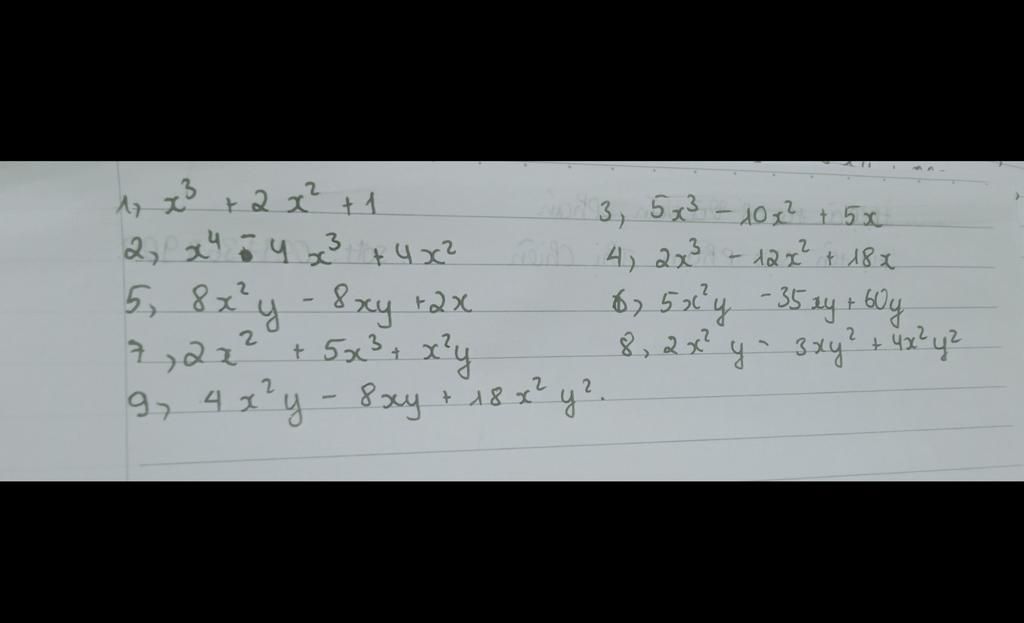 1, x³ + 2x² + 1
3, 5x³ - 10x² + 5x
2, x⁴ - 4x³ + 4x²
4, 2x³ - 12x² + 18x
5, 8x²y - 8xy + 2x
6, 5x²y - 35xy + 60y
7, 2x² + 5x³ + x²y
8, 2x²y - 3xy² + 4x²y²
9, 4x²y - 8xy + 18x²y².